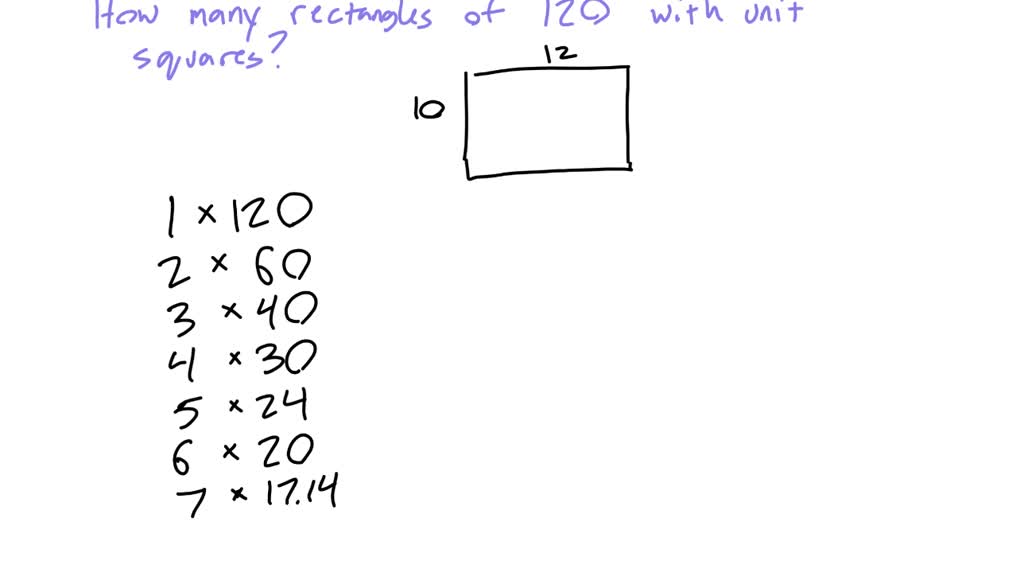 How many rectangles of 120 with unit
squares?
12
10
1 × 120
2 × 60
3 × 40
4 × 30
5 × 24
6 × 20
7 × 17.14